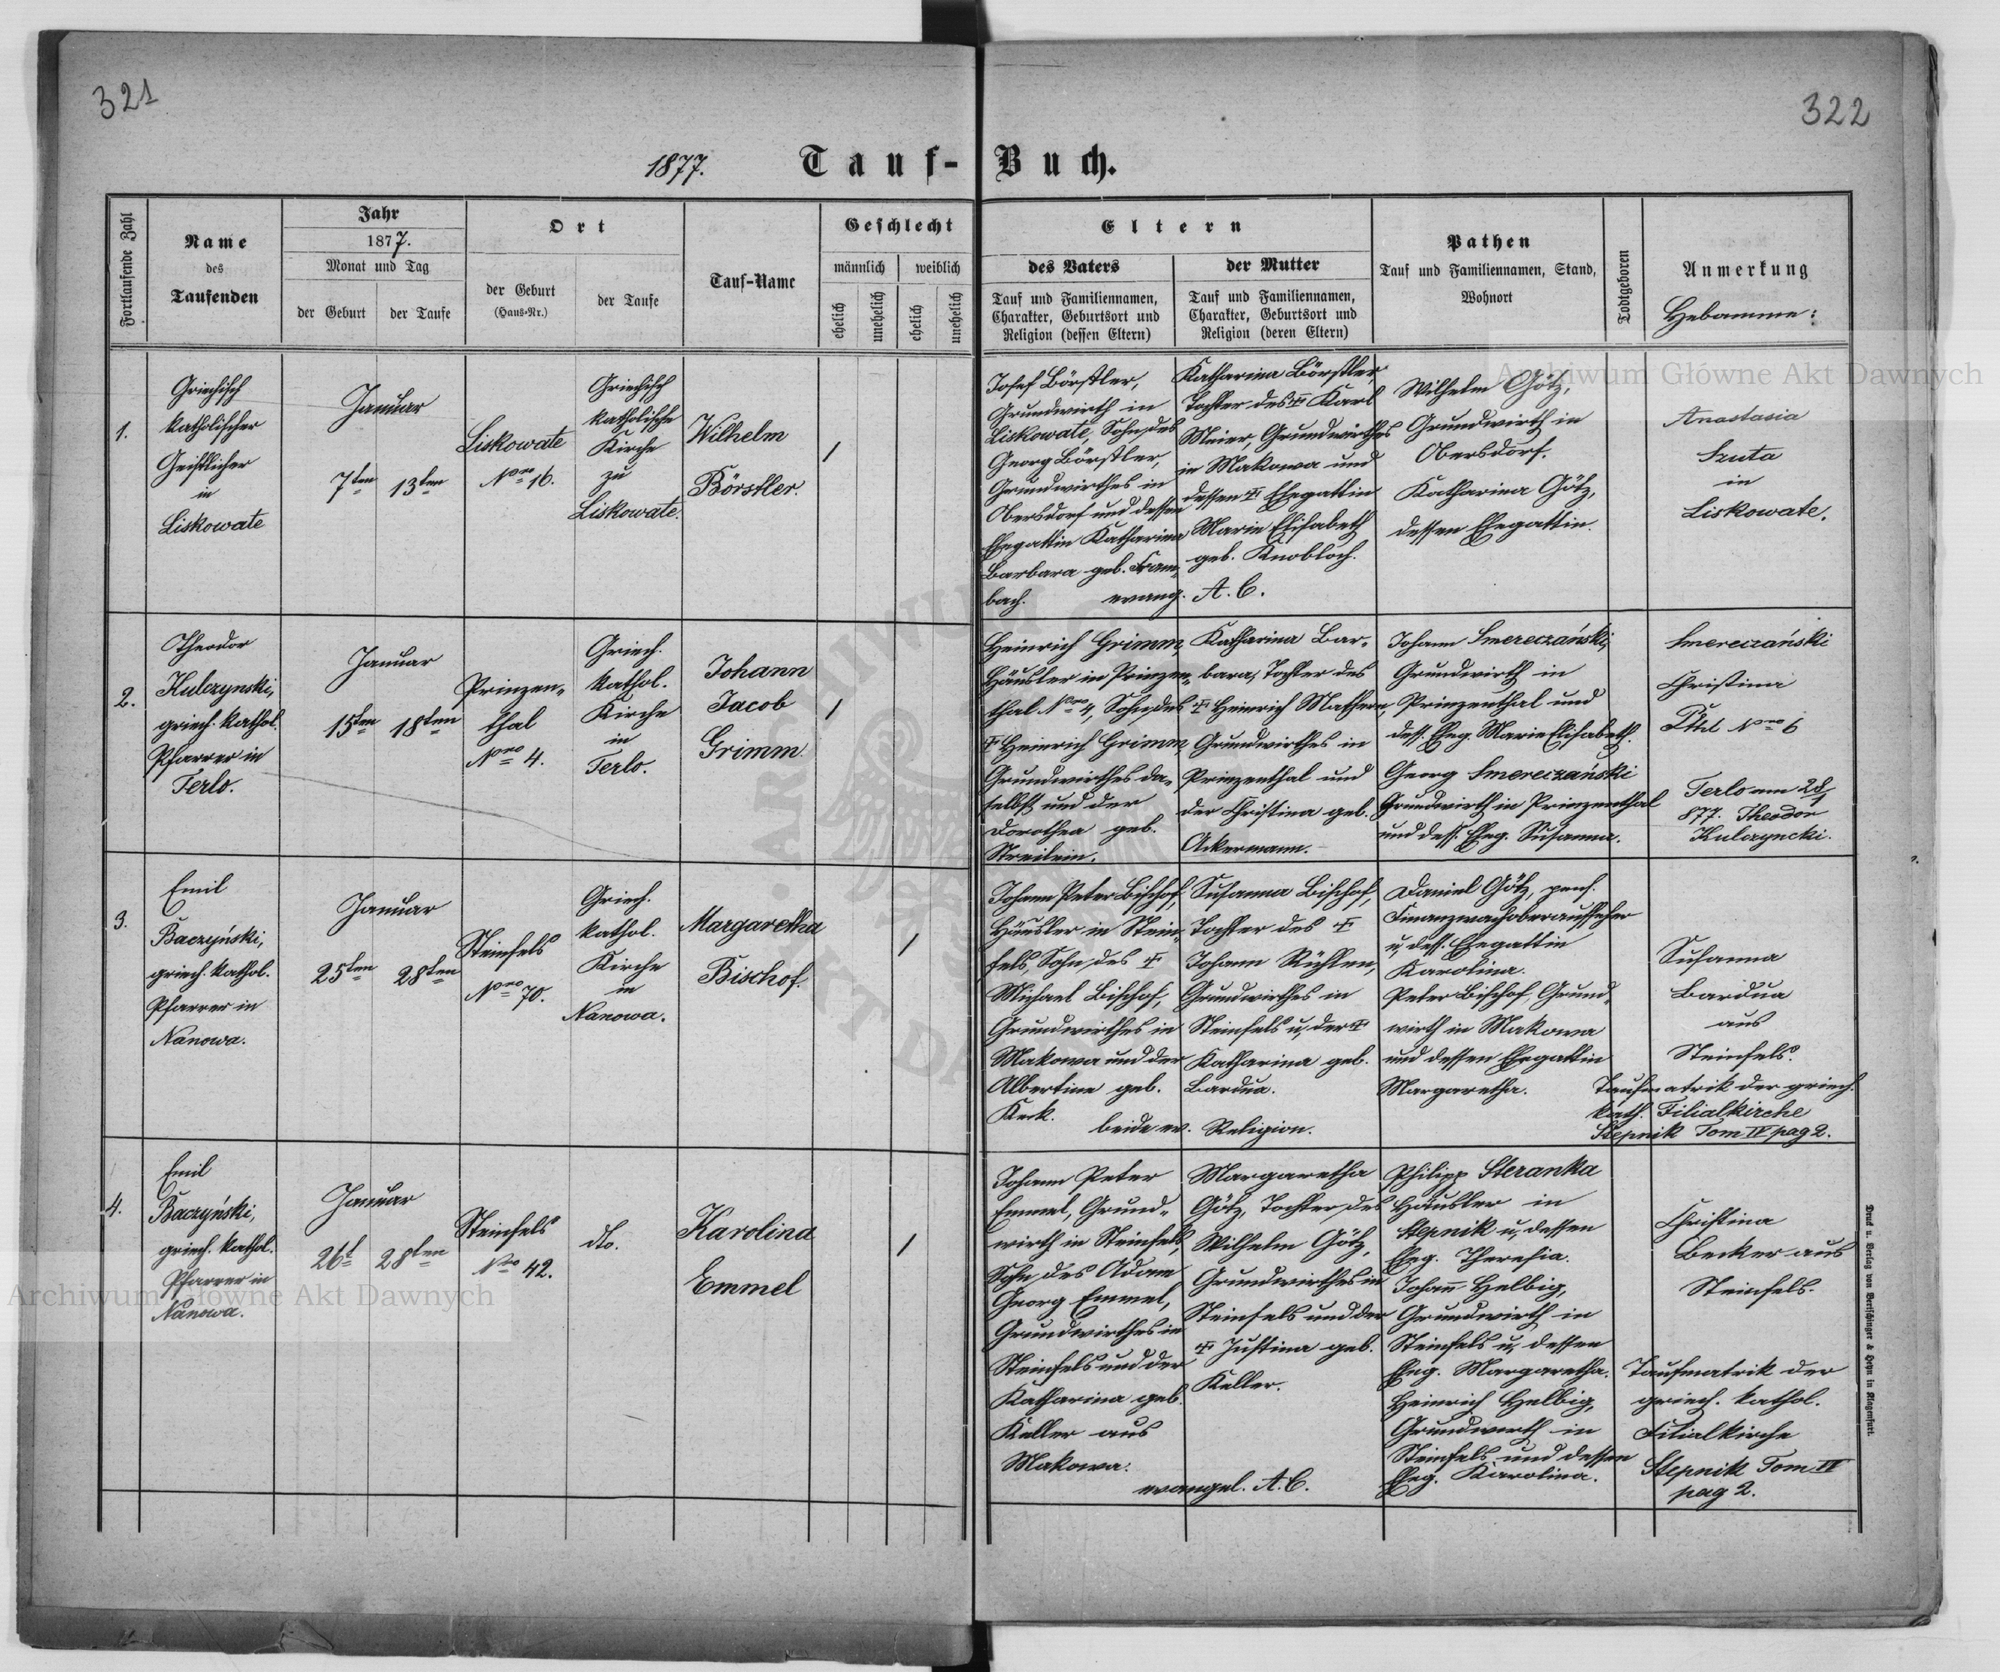 321
322
1877.
Tauf-Buch.
Fortlaufende Zahl
Name
des
Taufenden
Jahr
1877.
Monat und Tag
der Geburt
der Taufe
Ort
der Geburt
(Haus-Nr.)
der Taufe
Tauf-Name
Geschlecht
männlich
weiblich
ehelich
unehelich
ehelich
unehelich
Eltern
des Vaters
Tauf und Familiennamen,
Charakter, Geburtsort und
Religion (dessen Eltern)
der Mutter
Tauf und Familiennamen,
Charakter, Geburtsort und
Religion (deren Eltern)
Pathen
Tauf und Familiennamen, Stand,
Wohnort
Todtgeboren
Anmerkung
Hebamme:
1.
Griechisch
katholischer
Geistlicher
in
Liskowate
Januar
7ten
13ten
Liskowate
Nro 16.
Griechisch
katholische
Kirche
zu
Liskowate.
Wilhelm
Börstler.
/
Josef Börstler,
Grundwirth in
Liskowate, Sohn des
Georg Börstler,
Grundwirthes in
Obersdorf und dessen
Ehegattin Katharina
Barbara geb. Fram-
bach.
Katharina Börstler,
Tochter des ‡ Karl
Meier, Grundwirthes
in Makowa und
dessen ‡ Ehegattin
Marie Elisabeth
geb. Knobloch.
evang. A. C.
Wilhelm Götz,
Grundwirth in
Obersdorf.
Katharina Götz,
dessen Ehegattin.
Anastasia
Szuta
in
Liskowate.
2.
Theodor
Kulczynski,
griech. kathol.
Pfarrer in
Terlo.
Januar
15ten
18ten
Prinzen-
thal
Nro 4.
Griech.
kathol.
Kirche
in
Terlo.
Johann
Jacob
Grimm.
/
Heinrich Grimm,
Häusler in Prinzen-
thal Nro 4, Sohn des
‡ Heinrich Grimm
Grundwirthes da-
selbst und der
Dorothea geb.
Streilein.
Katharina Bar-
bara, Tochter des
‡ Heinrich Mathern,
Grundwirthes in
Prinzenthal und
der Christina geb.
Ackermann.
Johann Smereczański,
Grundwirth in
Prinzenthal und
dess. Eheg. Marie Elisabeth.
Georg Smereczański
Grundwirth in Prinzenthal
und dess. Eheg. Susanna.
Smereczański
Christina
Pthl Nro 6
Terlo am 28/
877. Theodor
Kulczyncki.
3.
Emil
Baczyński,
griech. kathol.
Pfarrer in
Nanowa.
Januar
25ten
28ten
Steinfels
Nro 70.
Griech.
kathol.
Kirche
in
Nanowa.
Margaretha
Bischof.
/
Johann Peter Bischof,
Häusler in Stein-
fels, Sohn des ‡
Michael Bischof,
Grundwirthes in
Makowa und der
Albertine geb.
Keck.
Susanna Bischof,
Tochter des ‡
Johann Rühlen,
Grundwirthes in
Steinfels u, der ‡
Katharina geb.
Bardua.
beide ev. Religion.
Daniel Götz, pens.
Finanzwachoberaufseher
u, dess. Ehegattin
Karolina.
Peter Bischof, Grund-
wirth in Makowa
und dessen Ehegattin
Margaretha.
Susanna
Bardua
aus
Steinfels.
Taufmatrik der griech.
kath. Filialkirche
Stepnik Tom IV pag 2.
4.
Emil
Baczyński,
griech. kathol.
Pfarrer in
Nanowa.
Januar
26t
28ten
Steinfels
Nro 42.
dto.
Karolina
Emmel
/
Johann Peter
Emmel, Grund-
wirth in Steinfels,
Sohn des Adam
Georg Emmel,
Grundwirthes in
Steinfels und der
Katharina geb.
Keller aus
Makowa.
Margaretha
Götz, Tochter des
Wilhelm Götz,
Grundwirthes in
Steinfels und der
‡ Justina geb.
Keller.
evangel. A. C.
Philipp Steranka
Häusler in
Stepnik u, dessen
Eheg. Theresia.
Johann Helbig,
Grundwirth in
Steinfels u, dessen
Eheg. Margaretha.
Heinrich Helbig,
Grundwirth in
Steinfels und dessen
Eheg. Karolina.
Christina
Becker aus
Steinfels.
Taufmatrik der
griech. kathol.
Filialkirche
Stepnik Tom IV
pag 2.
Druck u. Verlag von Bertschinger & Heyn in Klagenfurt.
Archiwum Główne Akt Dawnych
Archiwum Główne Akt Dawnych